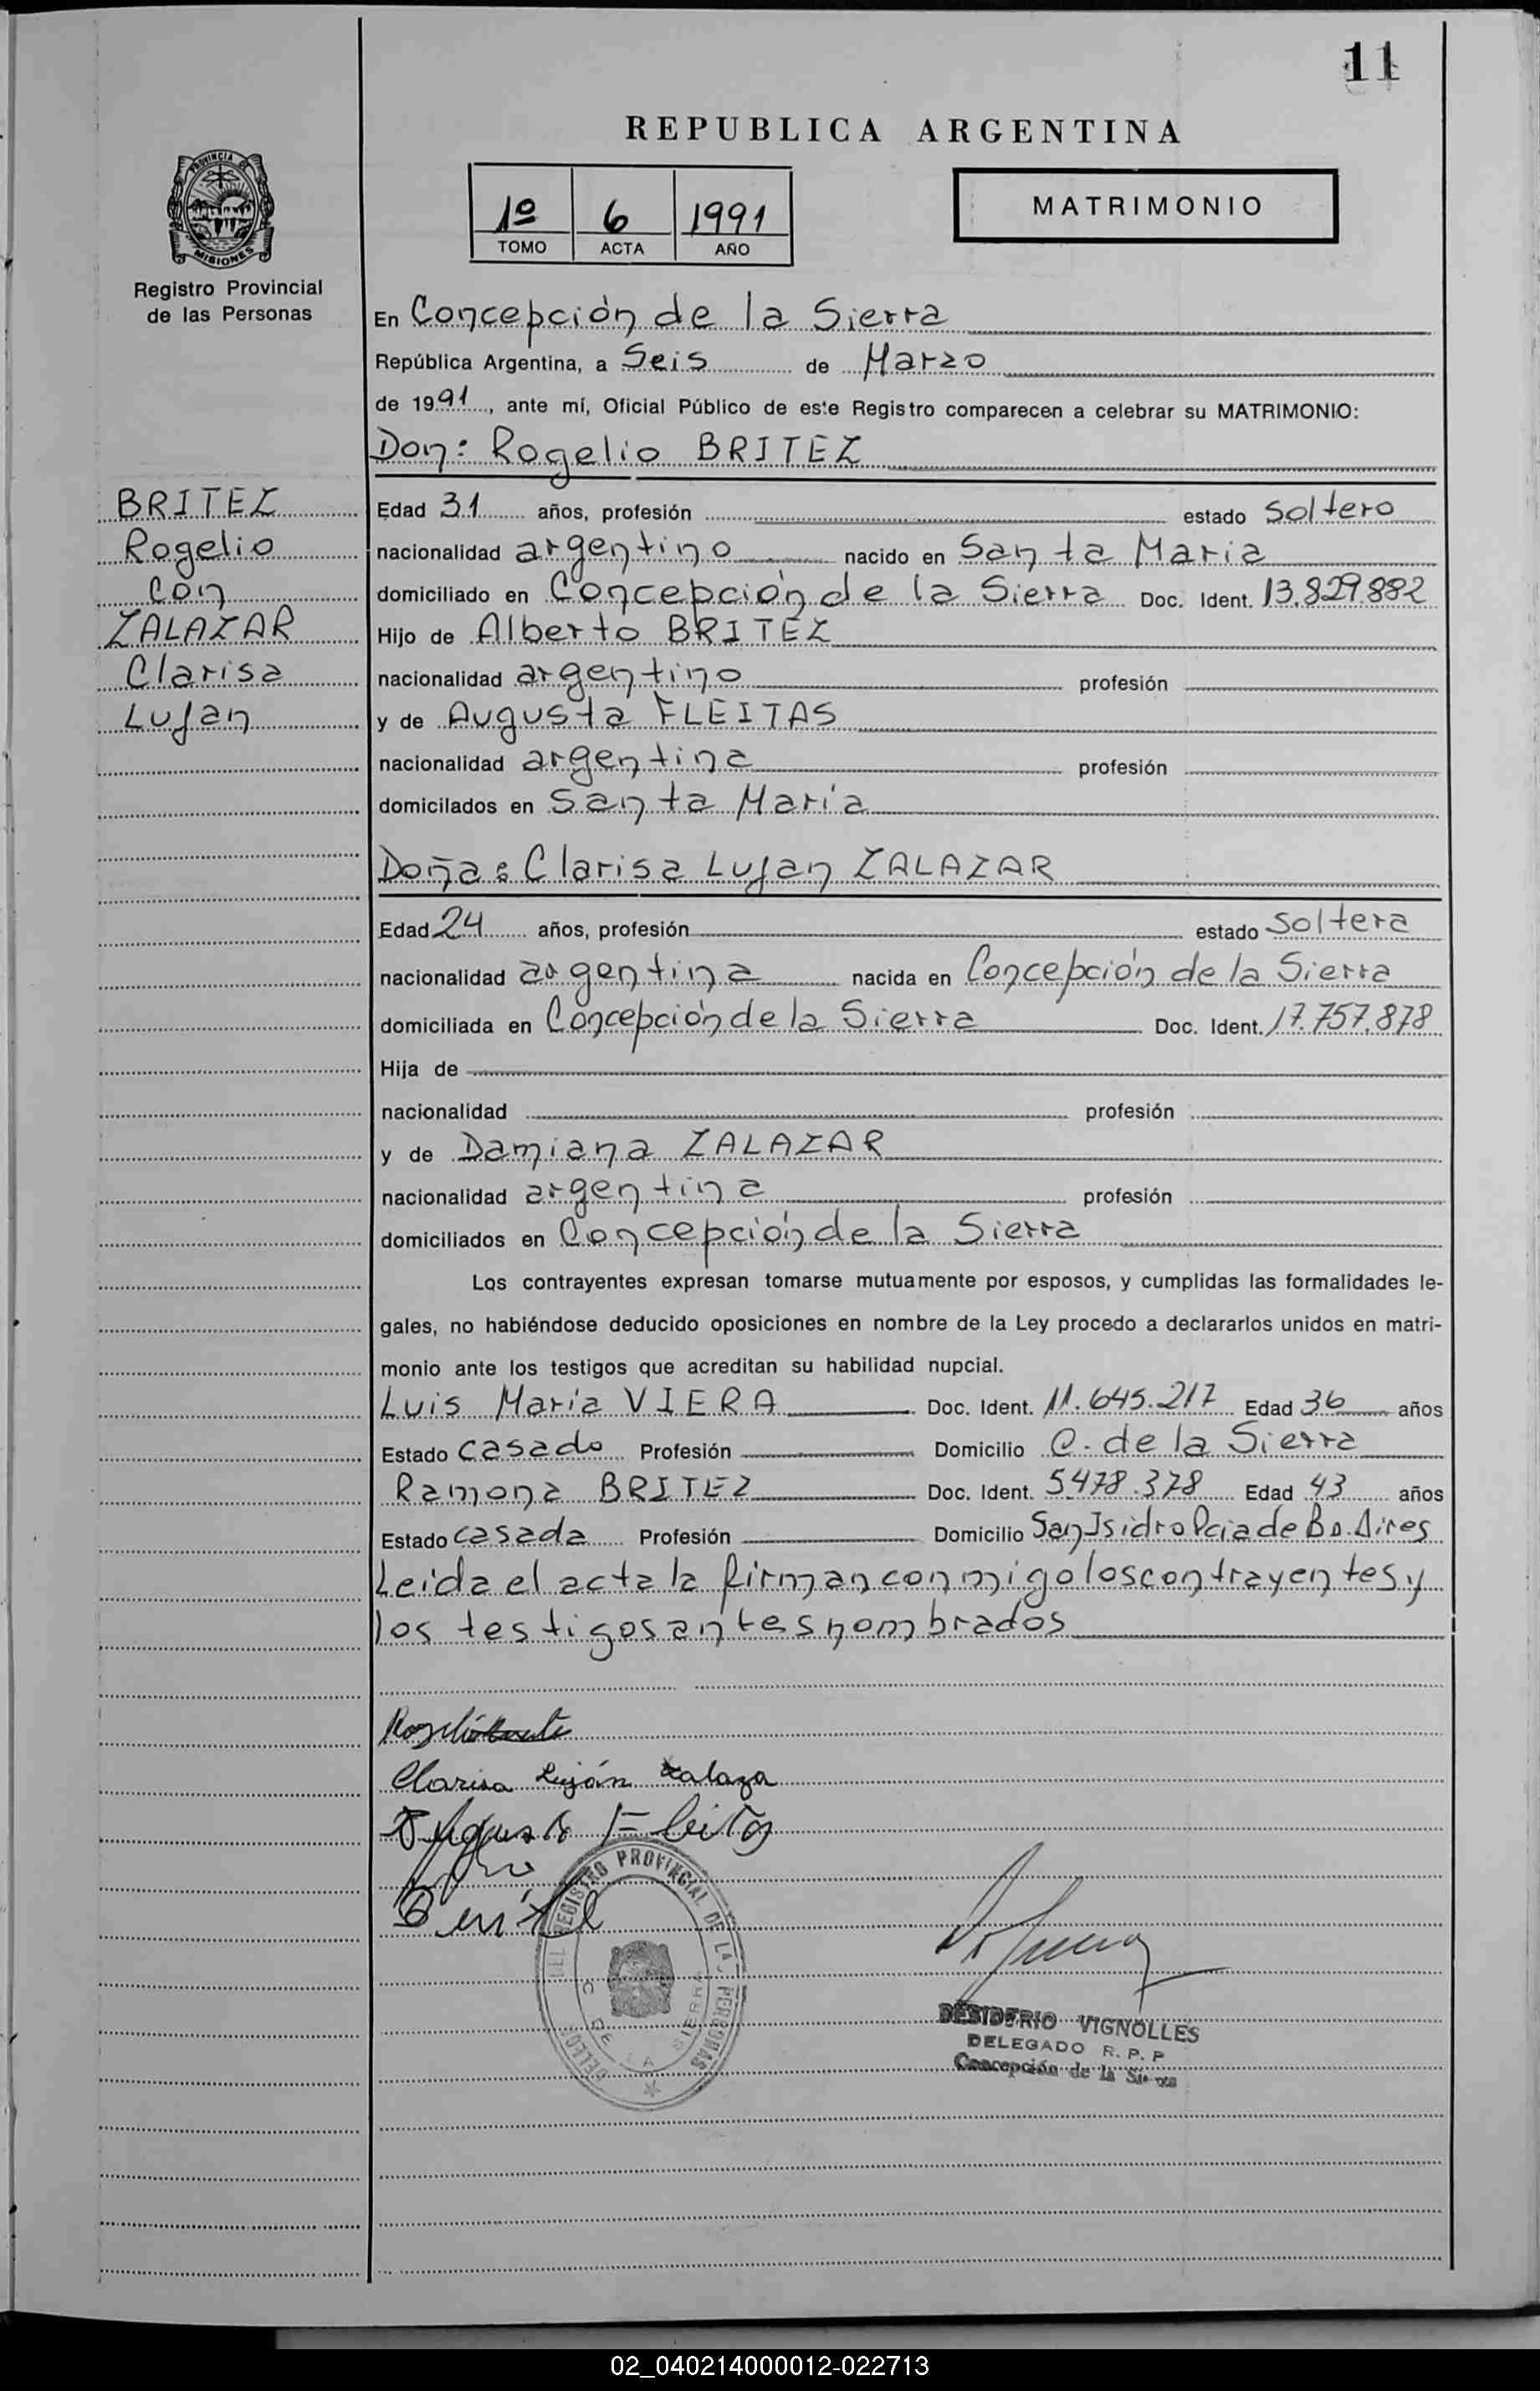 11
REPUBLICA ARGENTINA
1º 6 1991
TOMO ACTA AÑO
MATRIMONIO
PROVINCIA DE
MISIONES
Registro Provincial
de las Personas
BRITEZ
Rogelio
con
ZALAZAR
Clarisa
Lujan
En Concepción de la Sierra
República Argentina, a Seis de Marzo
de 1991, ante mí, Oficial Público de este Registro comparecen a celebrar su MATRIMONIO:
Don: Rogelio BRITEZ
Edad 31 años, profesión estado soltero
nacionalidad argentino nacido en Santa Maria
domiciliado en Concepción de la Sierra Doc. Ident. 13.829.882
Hijo de Alberto BRITEZ
nacionalidad argentino profesión
y de Augusta FLEITAS
nacionalidad argentina profesión
domicilados en Santa María
Doña: Clarisa Lujan ZALAZAR
Edad 24 años, profesión estado soltera
nacionalidad argentina nacida en Concepción de la Sierra
domiciliada en Concepción de la Sierra Doc. Ident. 17.757.878
Hija de
nacionalidad profesión
y de Damiana ZALAZAR
nacionalidad argentina profesión
domiciliados en Concepción de la Sierra
Los contrayentes expresan tomarse mutuamente por esposos, y cumplidas las formalidades le-
gales, no habiéndose deducido oposiciones en nombre de la Ley procedo a declararlos unidos en matri-
monio ante los testigos que acreditan su habilidad nupcial.
Luis María VIERA Doc. Ident. 11.645.217 Edad 36 años
Estado casado Profesión Domicilio C. de la Sierra
Ramona BRITEZ Doc. Ident. 5478.378 Edad 43 años
Estado casada Profesión Domicilio San Isidro Pcia de Bs. Aires
Leida el acta la firman conmigo los contrayentes y
los testigos antes nombrados
Clarisa Luján Zalaza
REGISTRO PROVINCIAL DE LA. PERSONAS
C DE LA SIERRA
DESIDERIO VIGNOLLES
DELEGADO R. P. P
Concepción de la Sierra
02_040214000012-022713